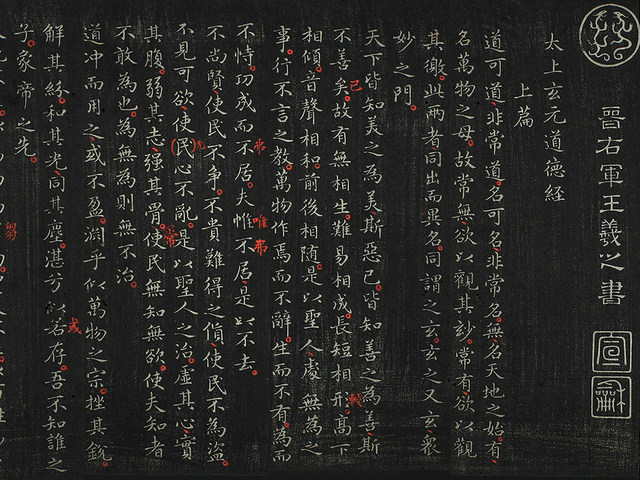 晉右軍王羲之書
宣和
太上玄元道德經
上篇
道可道。非常道。名可名。非常名。無名天地之始。有
名萬物之母。故常無。欲以觀其玅。常有。欲以觀
其徼。此兩者同出而異名。同謂之玄。玄之又玄。衆
妙之門。
天下皆知美之為美。斯惡已。皆知善之為善斯
不善矣。故有無相生。難易相成。長短相形。高下
相傾。音聲相和。前後相隨。是以聖人處無為之
事。行不言之教。萬物作焉而不辭。生而不有。為而
不恃。功成而不居。夫惟不居。是以不去。
不尚賢。使民不爭。不貴難得之貨。使民不為盜。
不見可欲。使民心不亂。是以聖人之治。虛其心。實
其腹。弱其志。强其骨。使民無知無欲。使夫知者
不敢為也。為無為則無不治。
道冲而用之。或不盈。淵乎似萬物之宗。挫其銳。
解其紛。和其光。同其塵。湛兮似若存。吾不知誰之
子。象帝之先。
已
較
弗
唯
弗
或
芻